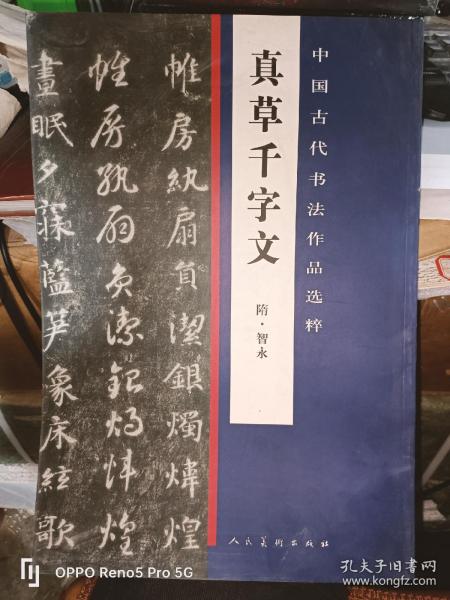 中国古代书法作品选粹
真草千字文
隋·智永
帷房紈扇員潔銀燭煒煌
帷房紈扇員潔銀燭煒煌
晝眠夕寐藍笋象床絃歌
人民美術出版社
OPPO Reno5 Pro 5G
孔夫子旧书网
www.kongfz.com